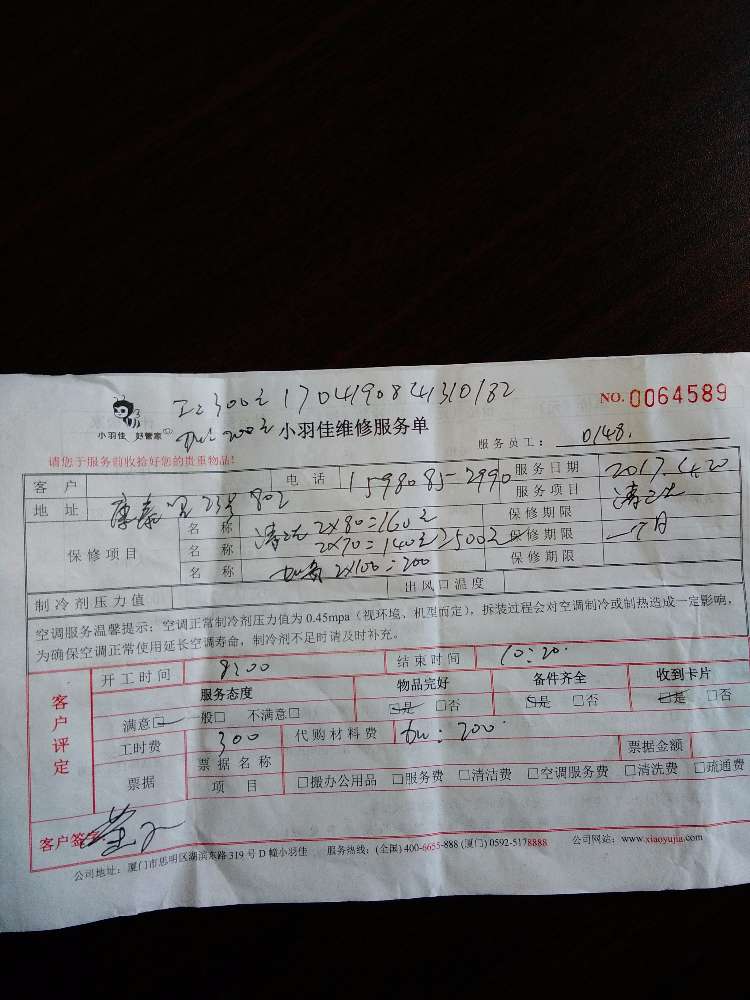 工:300元 170419084310132
NO. 0064589
小羽佳 好管家
200元 小羽佳维修服务单
服务员工: 0148.
请您于服务前收拾好您的贵重物品!
客户 电话 1598085-2990 服务日期 2017.4.20
地址 23号802 服务项目 清洗
保修项目 名称 清洗 2X80=160元 保修期限
名称 2X70=140元 500元 保修期限 一个月
名称 2X100=200 保修期限
制冷剂压力值 出风口温度
空调服务温馨提示:空调正常制冷剂压力值为 0.45mpa(视环境、机型而定),拆装过程会对空调制冷或制热造成一定影响,
为确保空调正常使用延长空调寿命,制冷剂不足时请及时补充。
客户评定
开工时间 8:00 结束时间 10:20.
服务态度 物品完好 备件齐全 收到卡片
满意□ 一般□ 不满意□ □是 □否 □是 □否 □是 □否
工时费 300 代购材料费 200.
票据 票据名称 票据金额
项目 □搬办公用品 □服务费 □清洁费 □空调服务费 □清洗费 □疏通费
客户签字
公司地址:厦门市思明区湖滨东路 319 号 D 幢小羽佳 服务热线:(全国) 400-6655-888 (厦门) 0592-5178888 公司网站:www.xiaoyujia.com